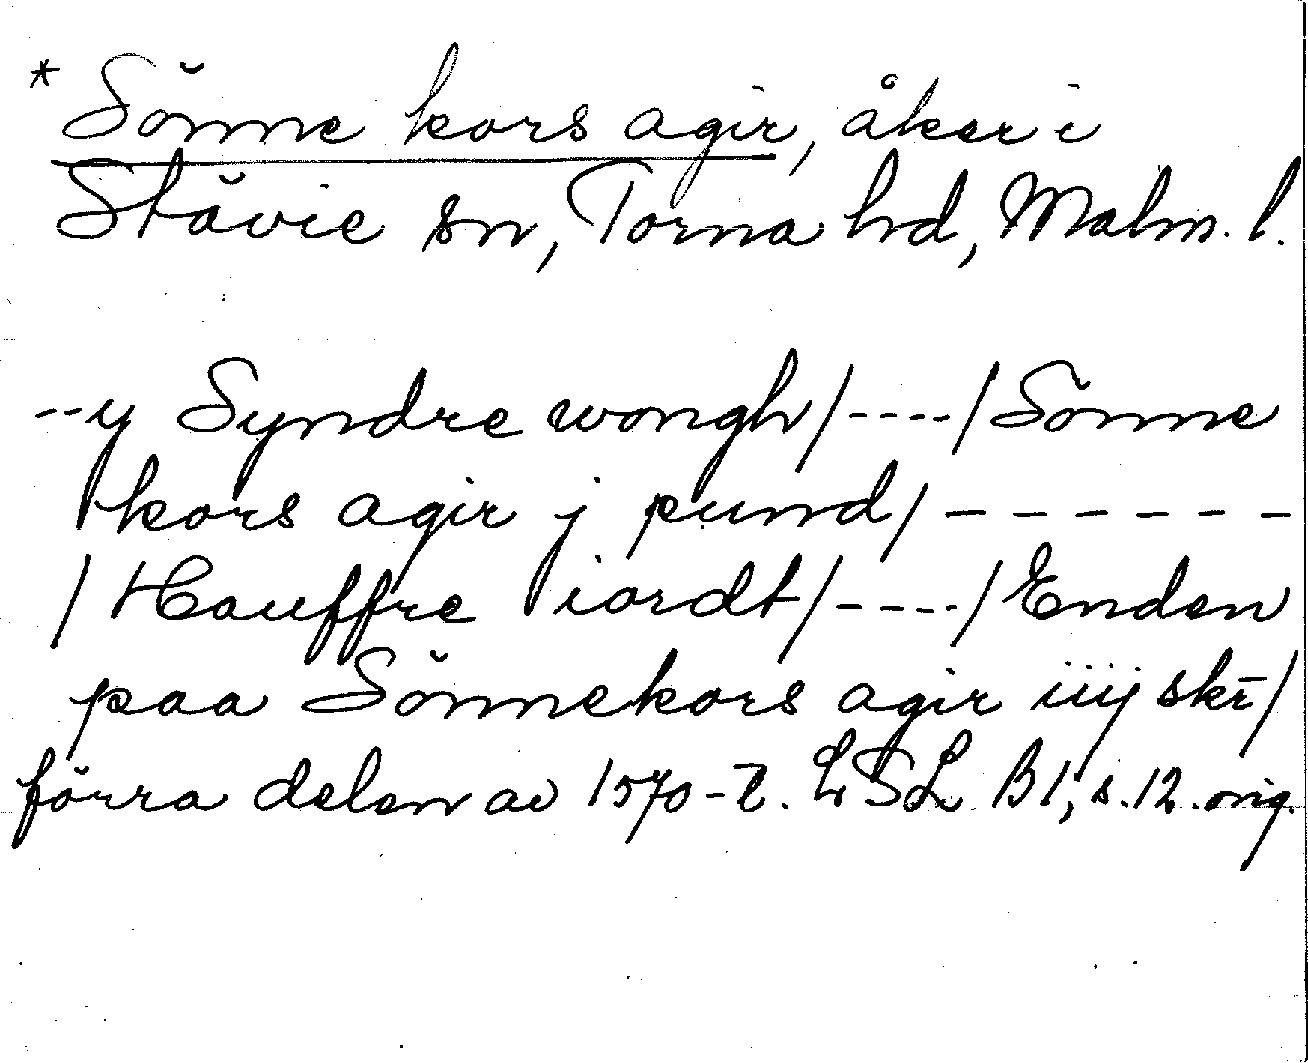 * Sönne kors agir, åker i
Stävie sn, Torna hd, Malm. l.
--y Syndre wongh/----/Sönne
kors agir j pund/------
/Hauffre iordt/----/Enden
paa Sönnekors agir iiij skr̄/
förra delen av 1570-t. LSL B1, s.12. orig.